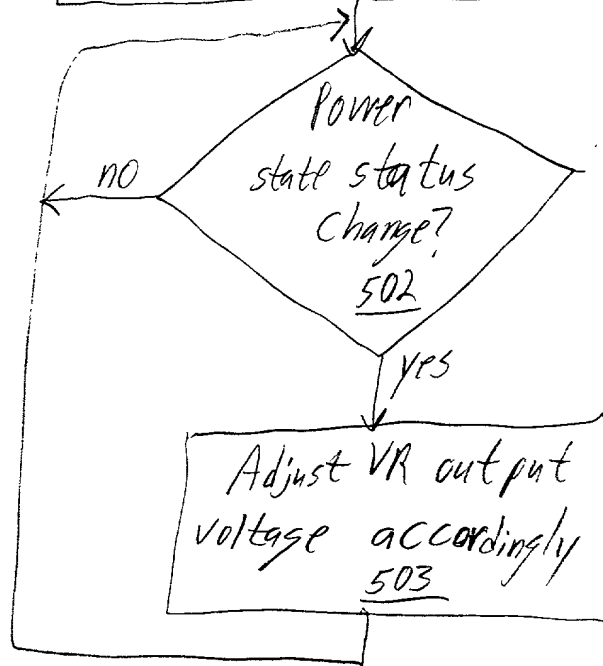 Power
no
state status
Change?
502
yes
Adjust VR output
voltage accordingly
503